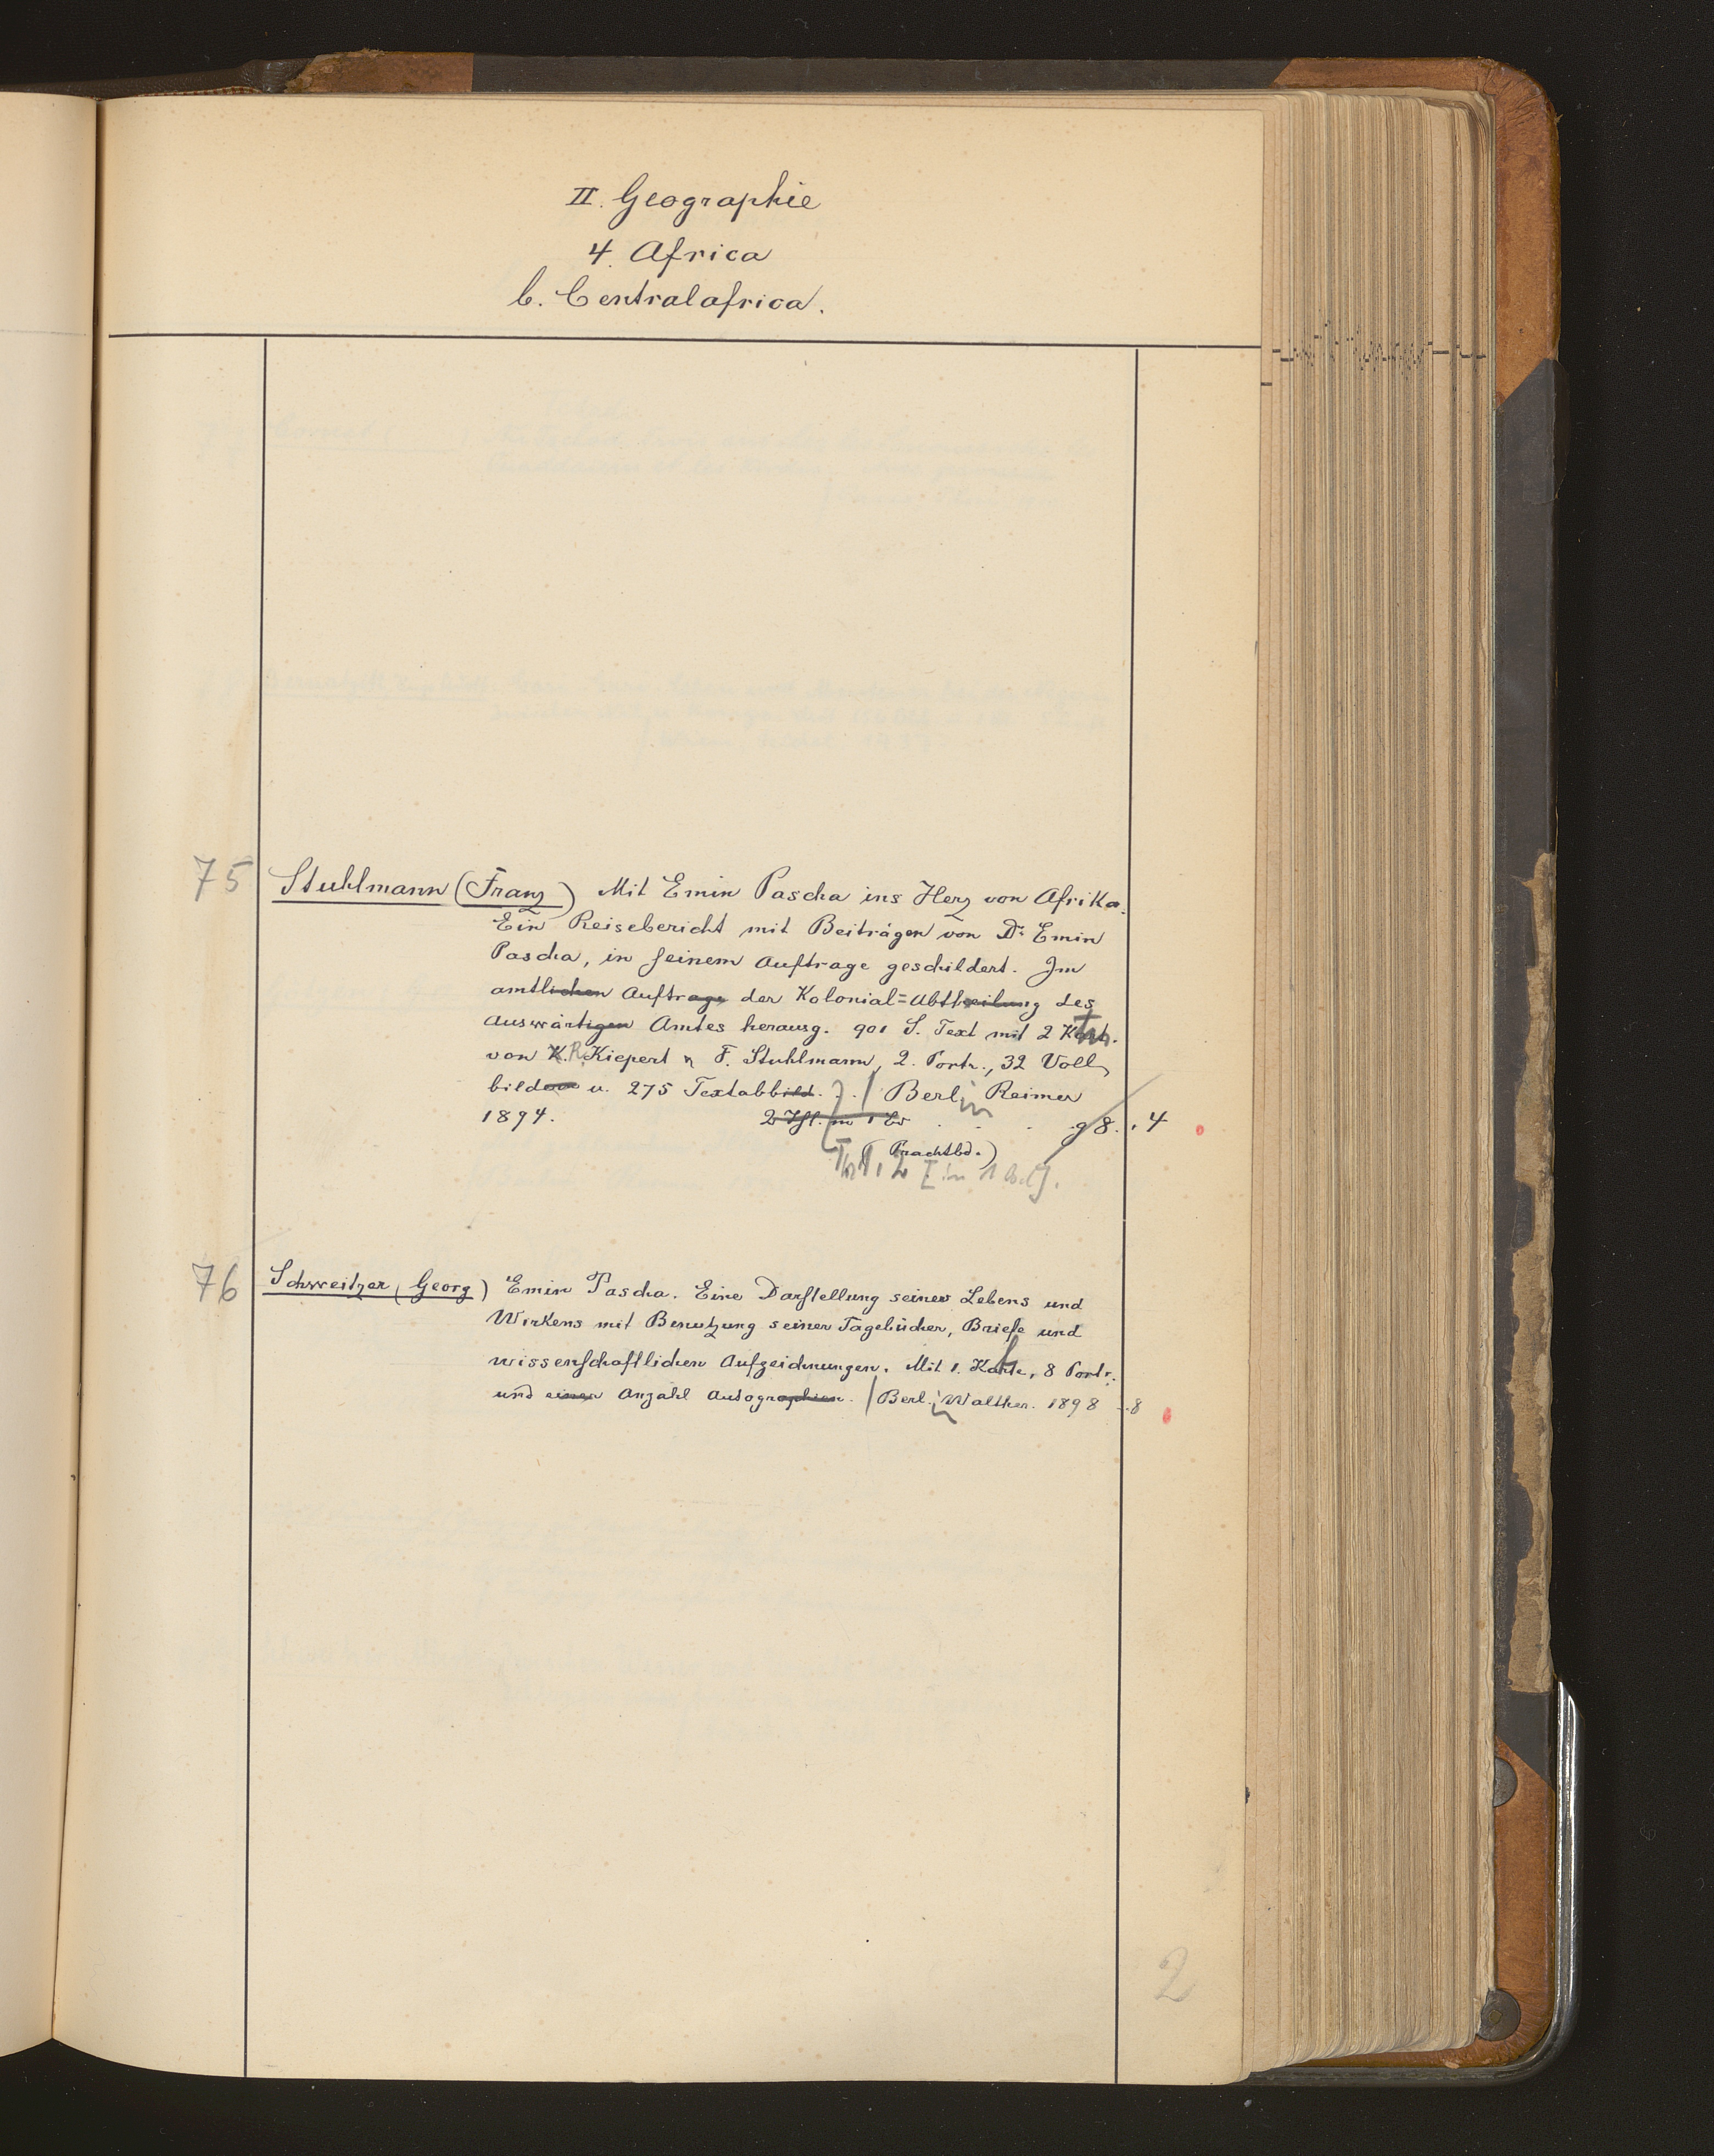 II. Geographie
4. Africa
b. Centralafrica.
75
Stuhlmann (Franz) Mit Emin Pascha ins Herz von Afrika.
Ein Reisebericht mit Beiträgen von Dr. Emin
Pascha, in seinem Auftrage geschildert. Im
amtlichen Auftrage der Kolonial=Abtheilung des
Auswärtigen Amtes herausg. 901 S. Text mit 2 Kart.
von K. R. Kiepert u. F. Stuhlmann, 2. Portr., 32 Voll
bildern u. 275 Textabbild. / Berlin Reimer
1894. 2 Thl. in 1 Bd . . . g 8. . 4
(Prachtbd.)
Th 1, 2 [in 1 Bd].
76
Schweitzer (Georg) Emin Pascha. Eine Darstellung seines Lebens und
Wirkens mit Benutzung seiner Tagebücher, Briefe und
wissenschaftlichen Aufzeichnungen. Mit 1. Karte, 8 Portr.
und einer Anzahl Autographien. / Berlin Walther. 1898 .8
2